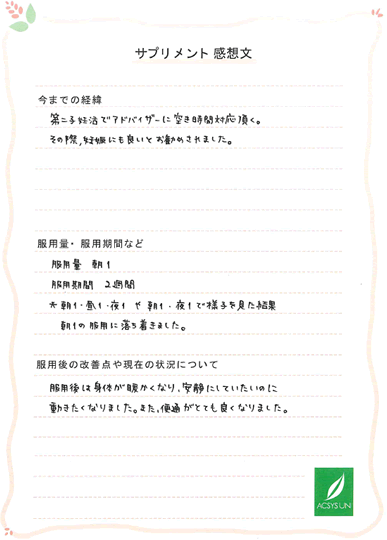 サプリメント 感想文
今までの経緯
第二子妊活でアドバイザーに空き時間対応頂く。
その際,妊娠にも良いとお勧めされました。
服用量・服用期間など
服用量 朝1
服用期間 2週間
*朝1・昼1・夜1 や 朝1・夜1で様子を見た結果
朝1の服用に落ち着きました。
服用後の改善点や現在の状況について
服用後は身体が暖かくなり,安静にしていたいのに
動きたくなりました。また,便通がとても良くなりました。
ACSYSUN